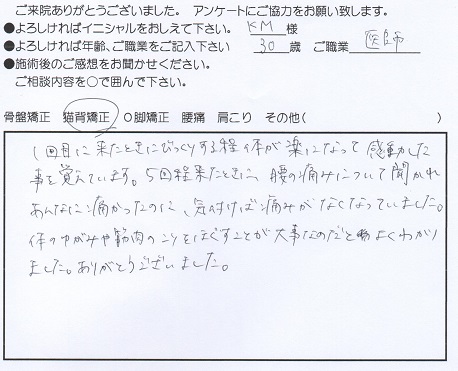 ご来院ありがとうございました。 アンケートにご協力をお願い致します。
●よろしければイニシャルをおしえて下さい KM 様
●よろしければ年齢、ご職業をご記入下さい 30 歳 ご職業 医師
●施術後のご感想をお聞かせください。
ご相談内容を〇で囲んで下さい。
骨盤矯正 猫背矯正 O脚矯正 腰痛 肩こり その他( )
1回目に来たときにびっくりする程体が楽になって感動した
事を覚えています。5回程来たときに、腰の痛みについて聞かれ
あんなに痛かったのに、気付けば痛みがなくなっていました。
体のゆがみや筋肉のコリをほぐすことが大事なのだとよくわかり
ました。ありがとうございました。